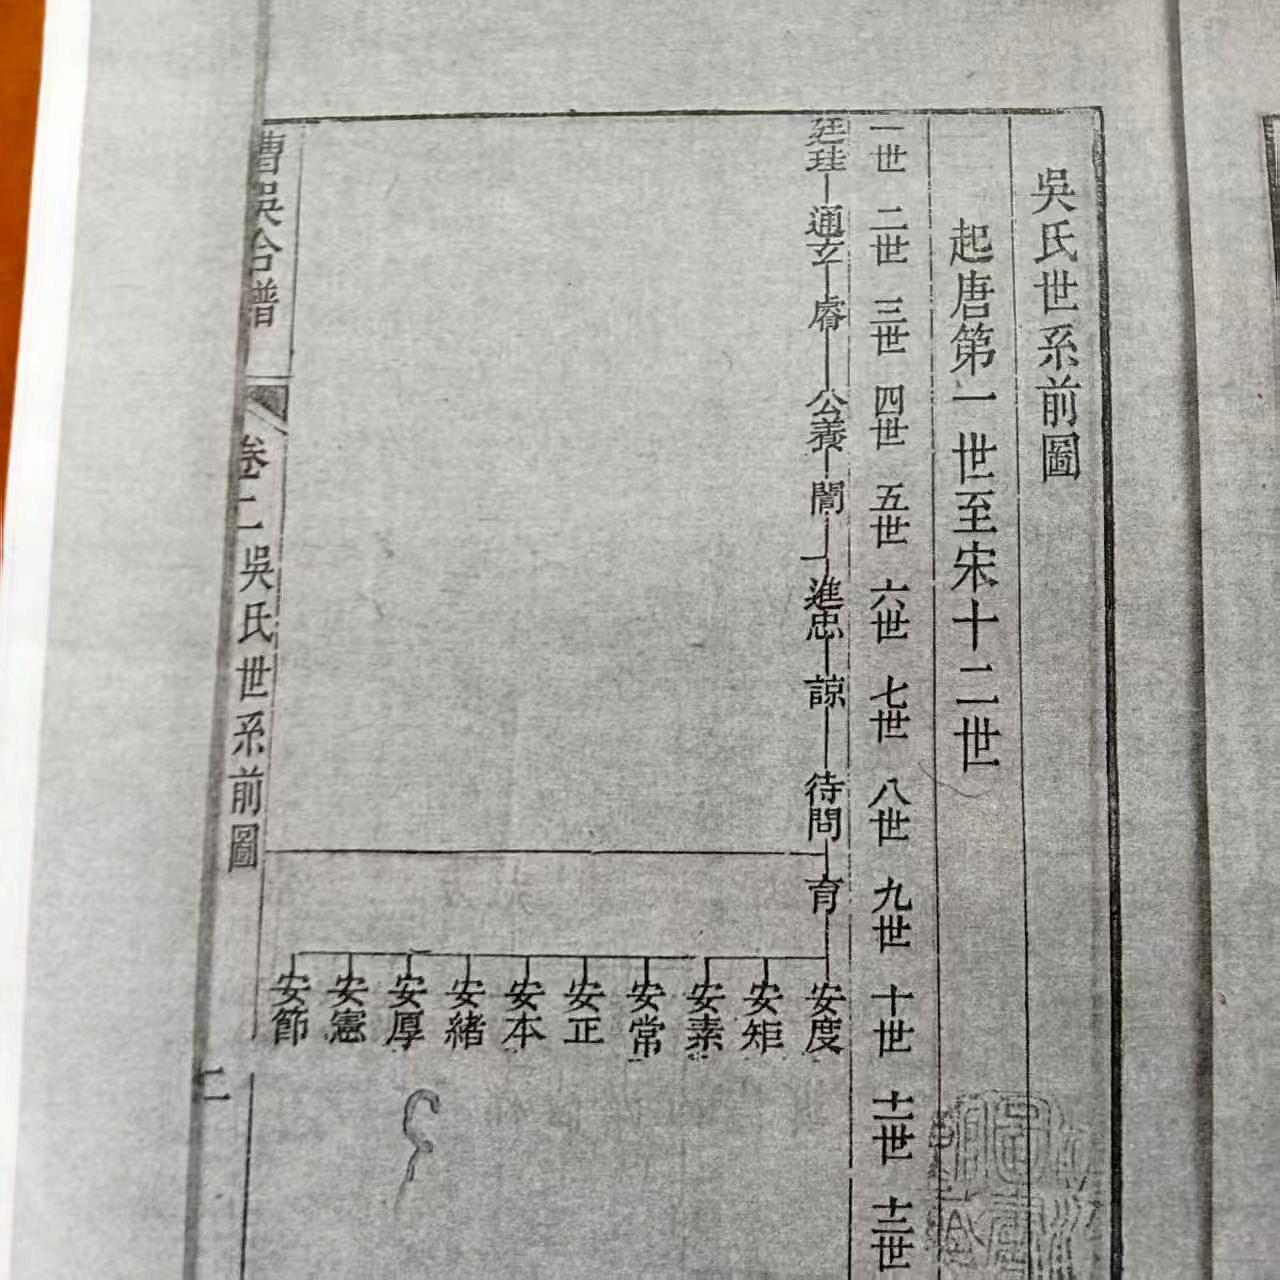 吳氏世系前圖
起唐第一世至宋十二世
一世 二世 三世 四世 五世 六世 七世 八世 九世 十世 十一世 十二世
廷珪 通玄 睿 公養 誾 進忠 諒 待問 育 安度
安矩
安素
安常
安正
安本
安緒
安厚
安憲
安節
曹吳合譜 卷二 吳氏世系前圖 二